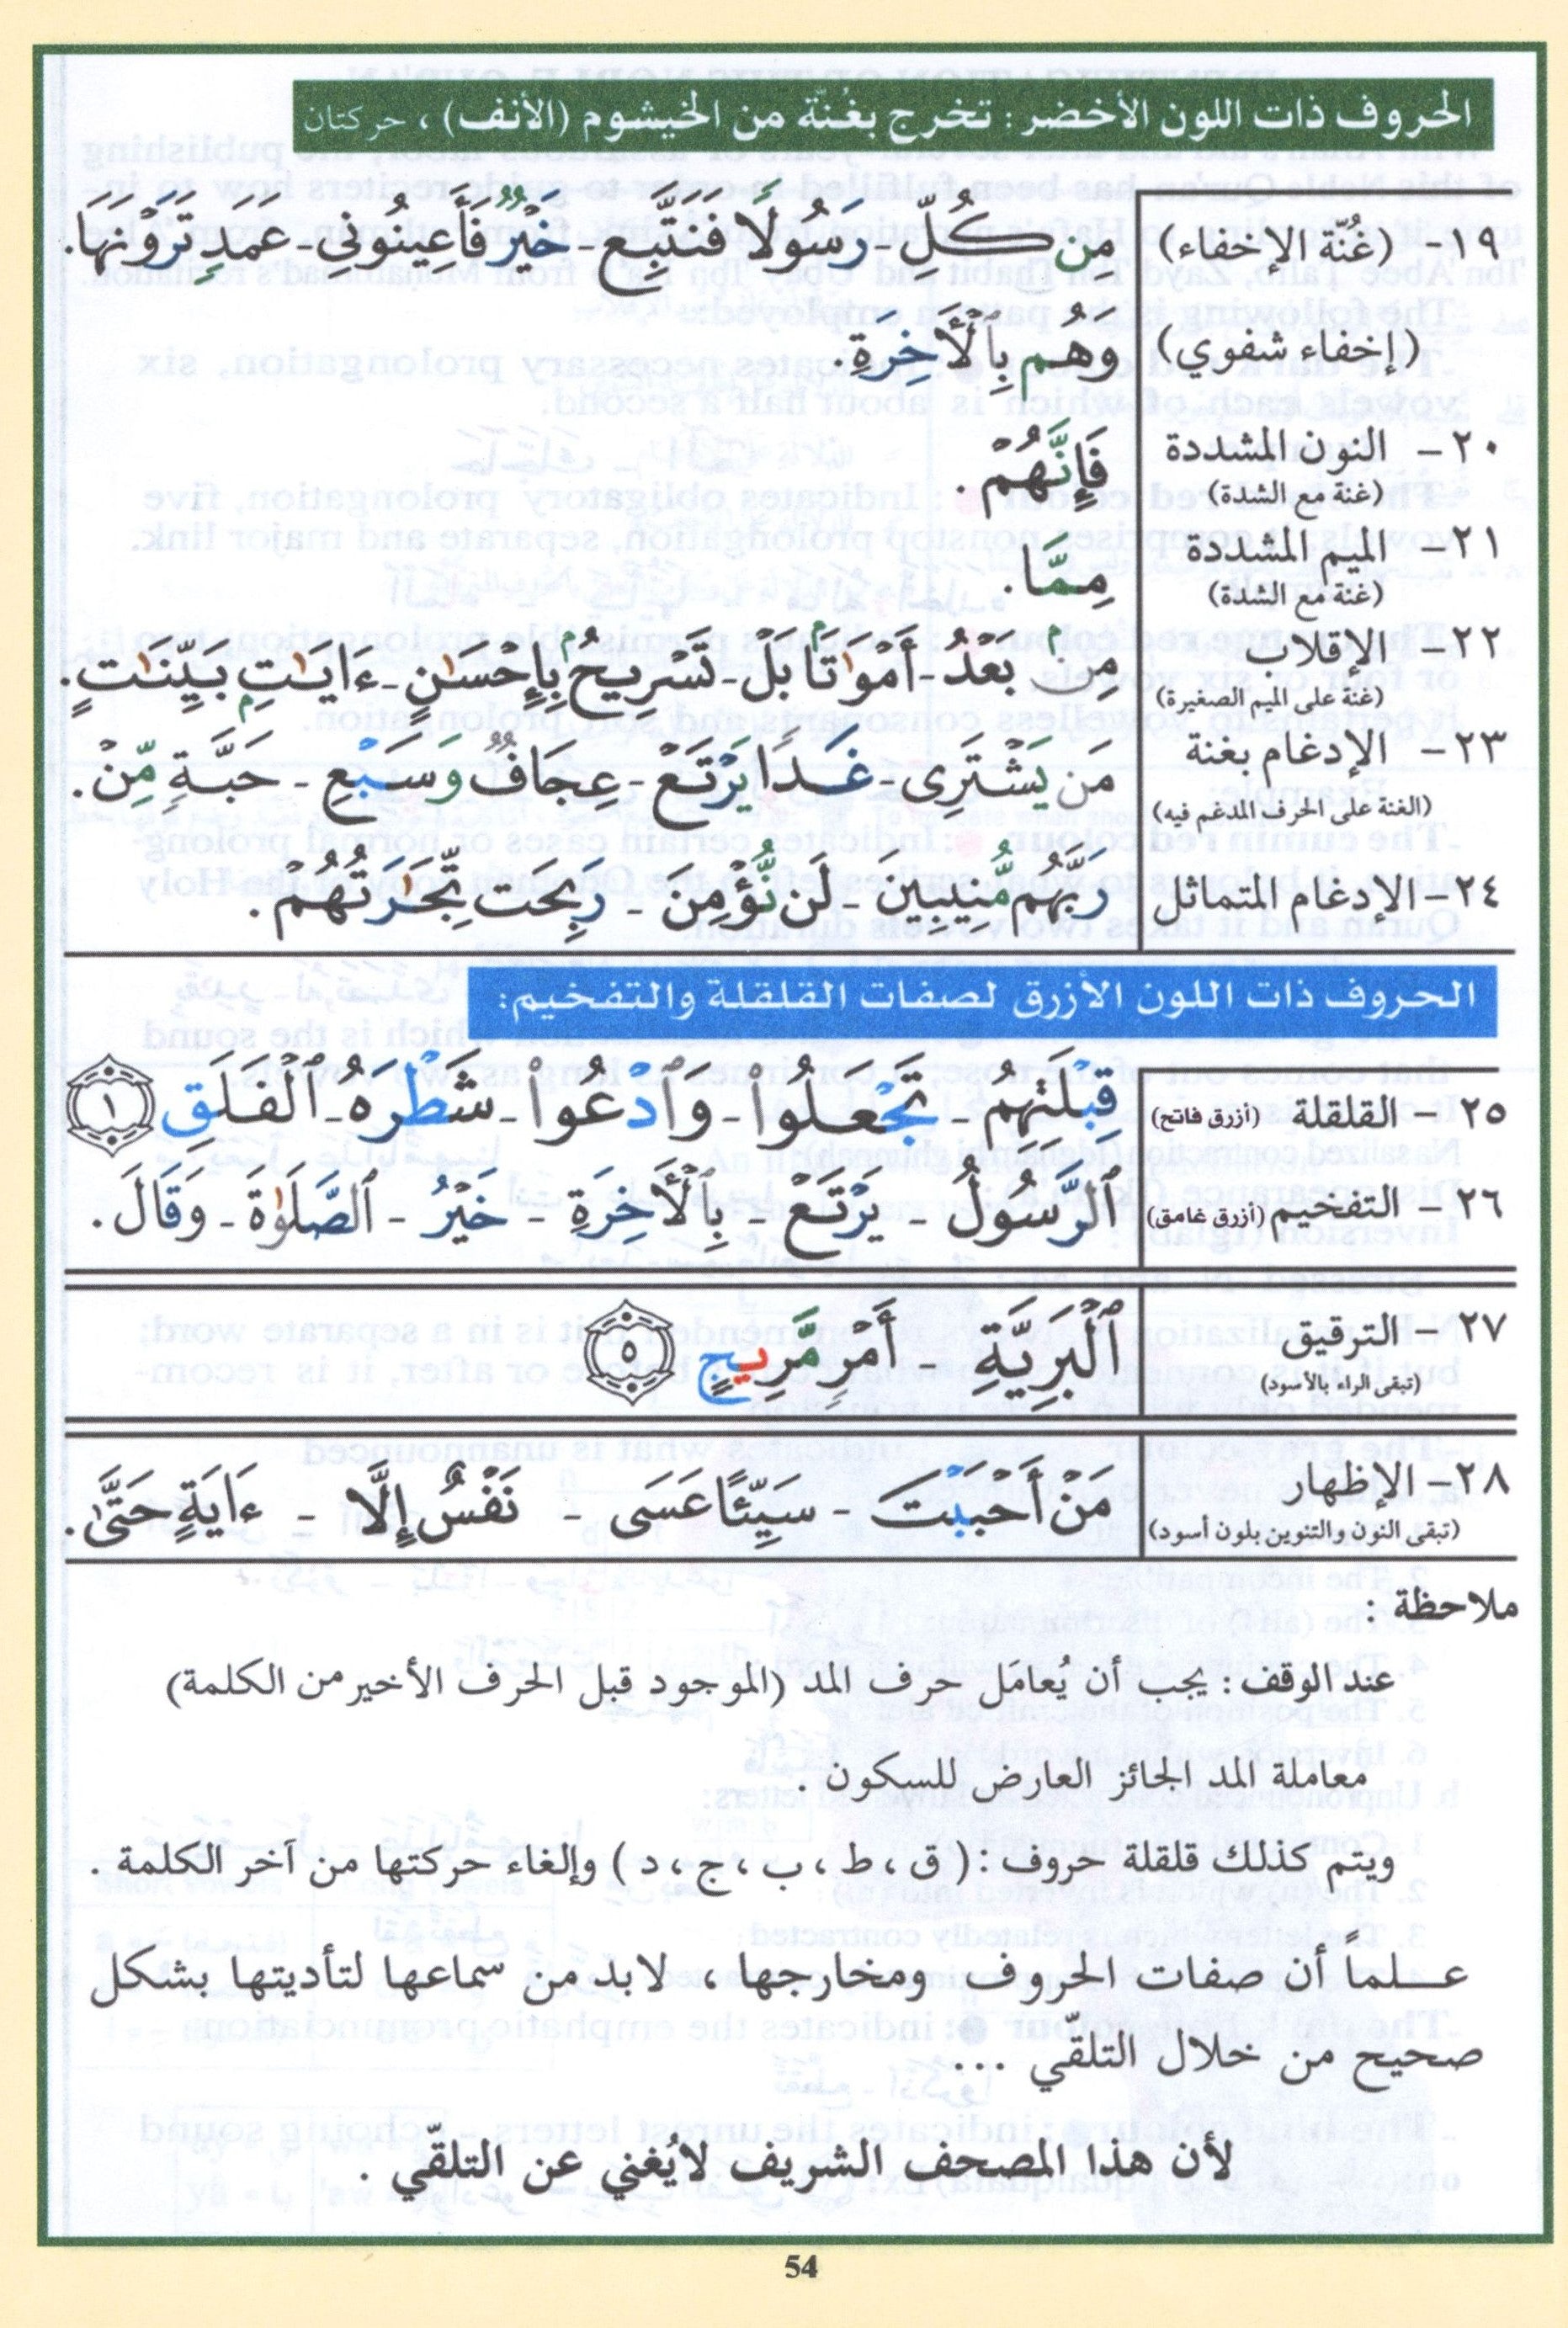 الحروف ذات اللون الأخضر : تخرج بغُنّة من الخيشوم (الأنف) ، حركتان
١٩- (غُنّة الإخفاء) مِن كُلِّ - رَسُولًا فَنَتَّبِعَ - خَيْرٌ فَأَعِينُونِى - عَمَدٍ تَرَوْنَهَا.
(إخفاء شفوي) وَهُم بِٱلْأَخِرَةِ.
٢٠- النون المشددة فَإِنَّهُمْ .
(غنة مع الشدة)
٢١- الميم المشددة مِمَّا.
(غنة مع الشدة)
٢٢- الإقلاب مِنۢ بَعْدُ - أَمْوَٰتَۢا بَلْ - تَسْرِيحُۢ بِإِحْسَٰنٍ - ءَايَٰتِۭ بَيِّنَٰتٍ.
(غنة على الميم الصغيرة)
٢٣- الإدغام بغنة مَن يَشْتَرِى - غَدًا يَرْتَعْ - عِجَافٌ وَسَبْعِ - حَبَّةٍ مِّنْ .
(الغنة على الحرف المدغم فيه)
٢٤- الإدغام المتماثل رَبَّهُم مُّنِيبِينَ - لَن نُّؤْمِنَ - رَبِحَت تِّجَٰرَتُهُمْ .
الحروف ذات اللون الأزرق لصفات القلقلة والتفخيم:
٢٥- القلقلة (أزرق فاتح) قِبْلَتِهِمُ - تَجْعَلُوا۟ - وَٱدْعُوا۟ - شَطْرَهُ - ٱلْفَلَقِ ١
٢٦- التفخيم (أزرق غامق) ٱلرَّسُولُ - يَرْتَعْ - بِٱلْأَخِرَةِ - خَيْرُ - ٱلصَّلَوٰةَ - وَقَالَ .
٢٧- الترقيق ٱلْبَرِيَّةِ - أَمْرٍ مَّرِيجٍ ٥
(تبقى الراء بالأسود)
٢٨- الإظهار مَنْ أَحْبَبْتَ - سَيِّئًا عَسَى - نَفْسٌ إِلَّا - ءَايَةٍ حَتَّىٰ .
(تبقى النون والتنوين بلون أسود)
ملاحظة :
عند الوقف : يجب أن يُعامَل حرف المد (الموجود قبل الحرف الأخير من الكلمة)
معاملة المد الجائز العارض للسكون .
ويتم كذلك قلقلة حروف : ( ق ، ط ، ب ، ج ، د ) وإلغاء حركتها من آخر الكلمة .
علماً أن صفات الحروف ومخارجها ، لابد من سماعها لتأديتها بشكل
صحيح من خلال التلقّي ...
لأن هذا المصحف الشريف لايُغني عن التلقّي .
54